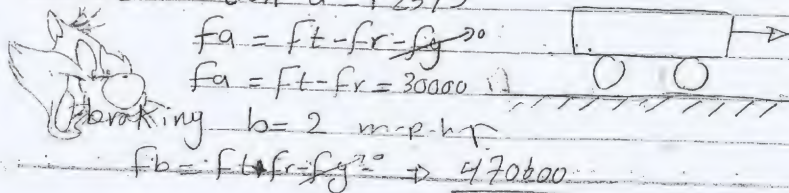 fa = ft - fr - fg→0
fa = ft - fr = 30000 N
braking b = 2 m-p-h-p
fb = ft + fr - fg→0 ⇒ 470600